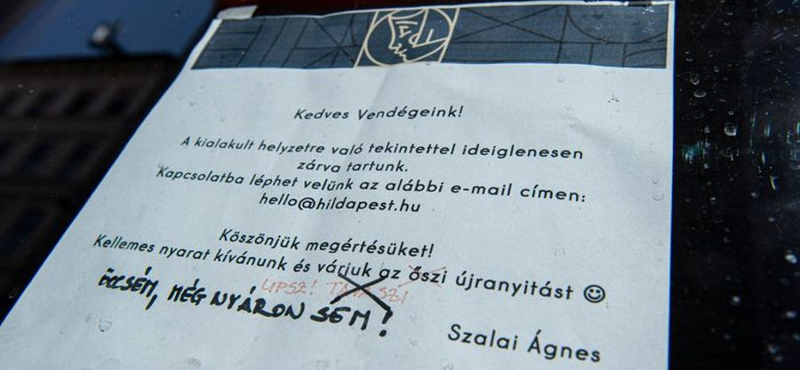 Kedves Vendégeink!
A kialakult helyzetre való tekintettel ideiglenesen
zárva tartunk.
Kapcsolatba léphet velünk az alábbi e-mail címen:
hello@hildapest.hu
Köszönjük megértésüket!
Kellemes nyarat kívánunk és várjuk az őszi újranyitást ☺
UPSZ!
ÖCSÉM, MÉG NYÁRON SEM!
Szalai Ágnes